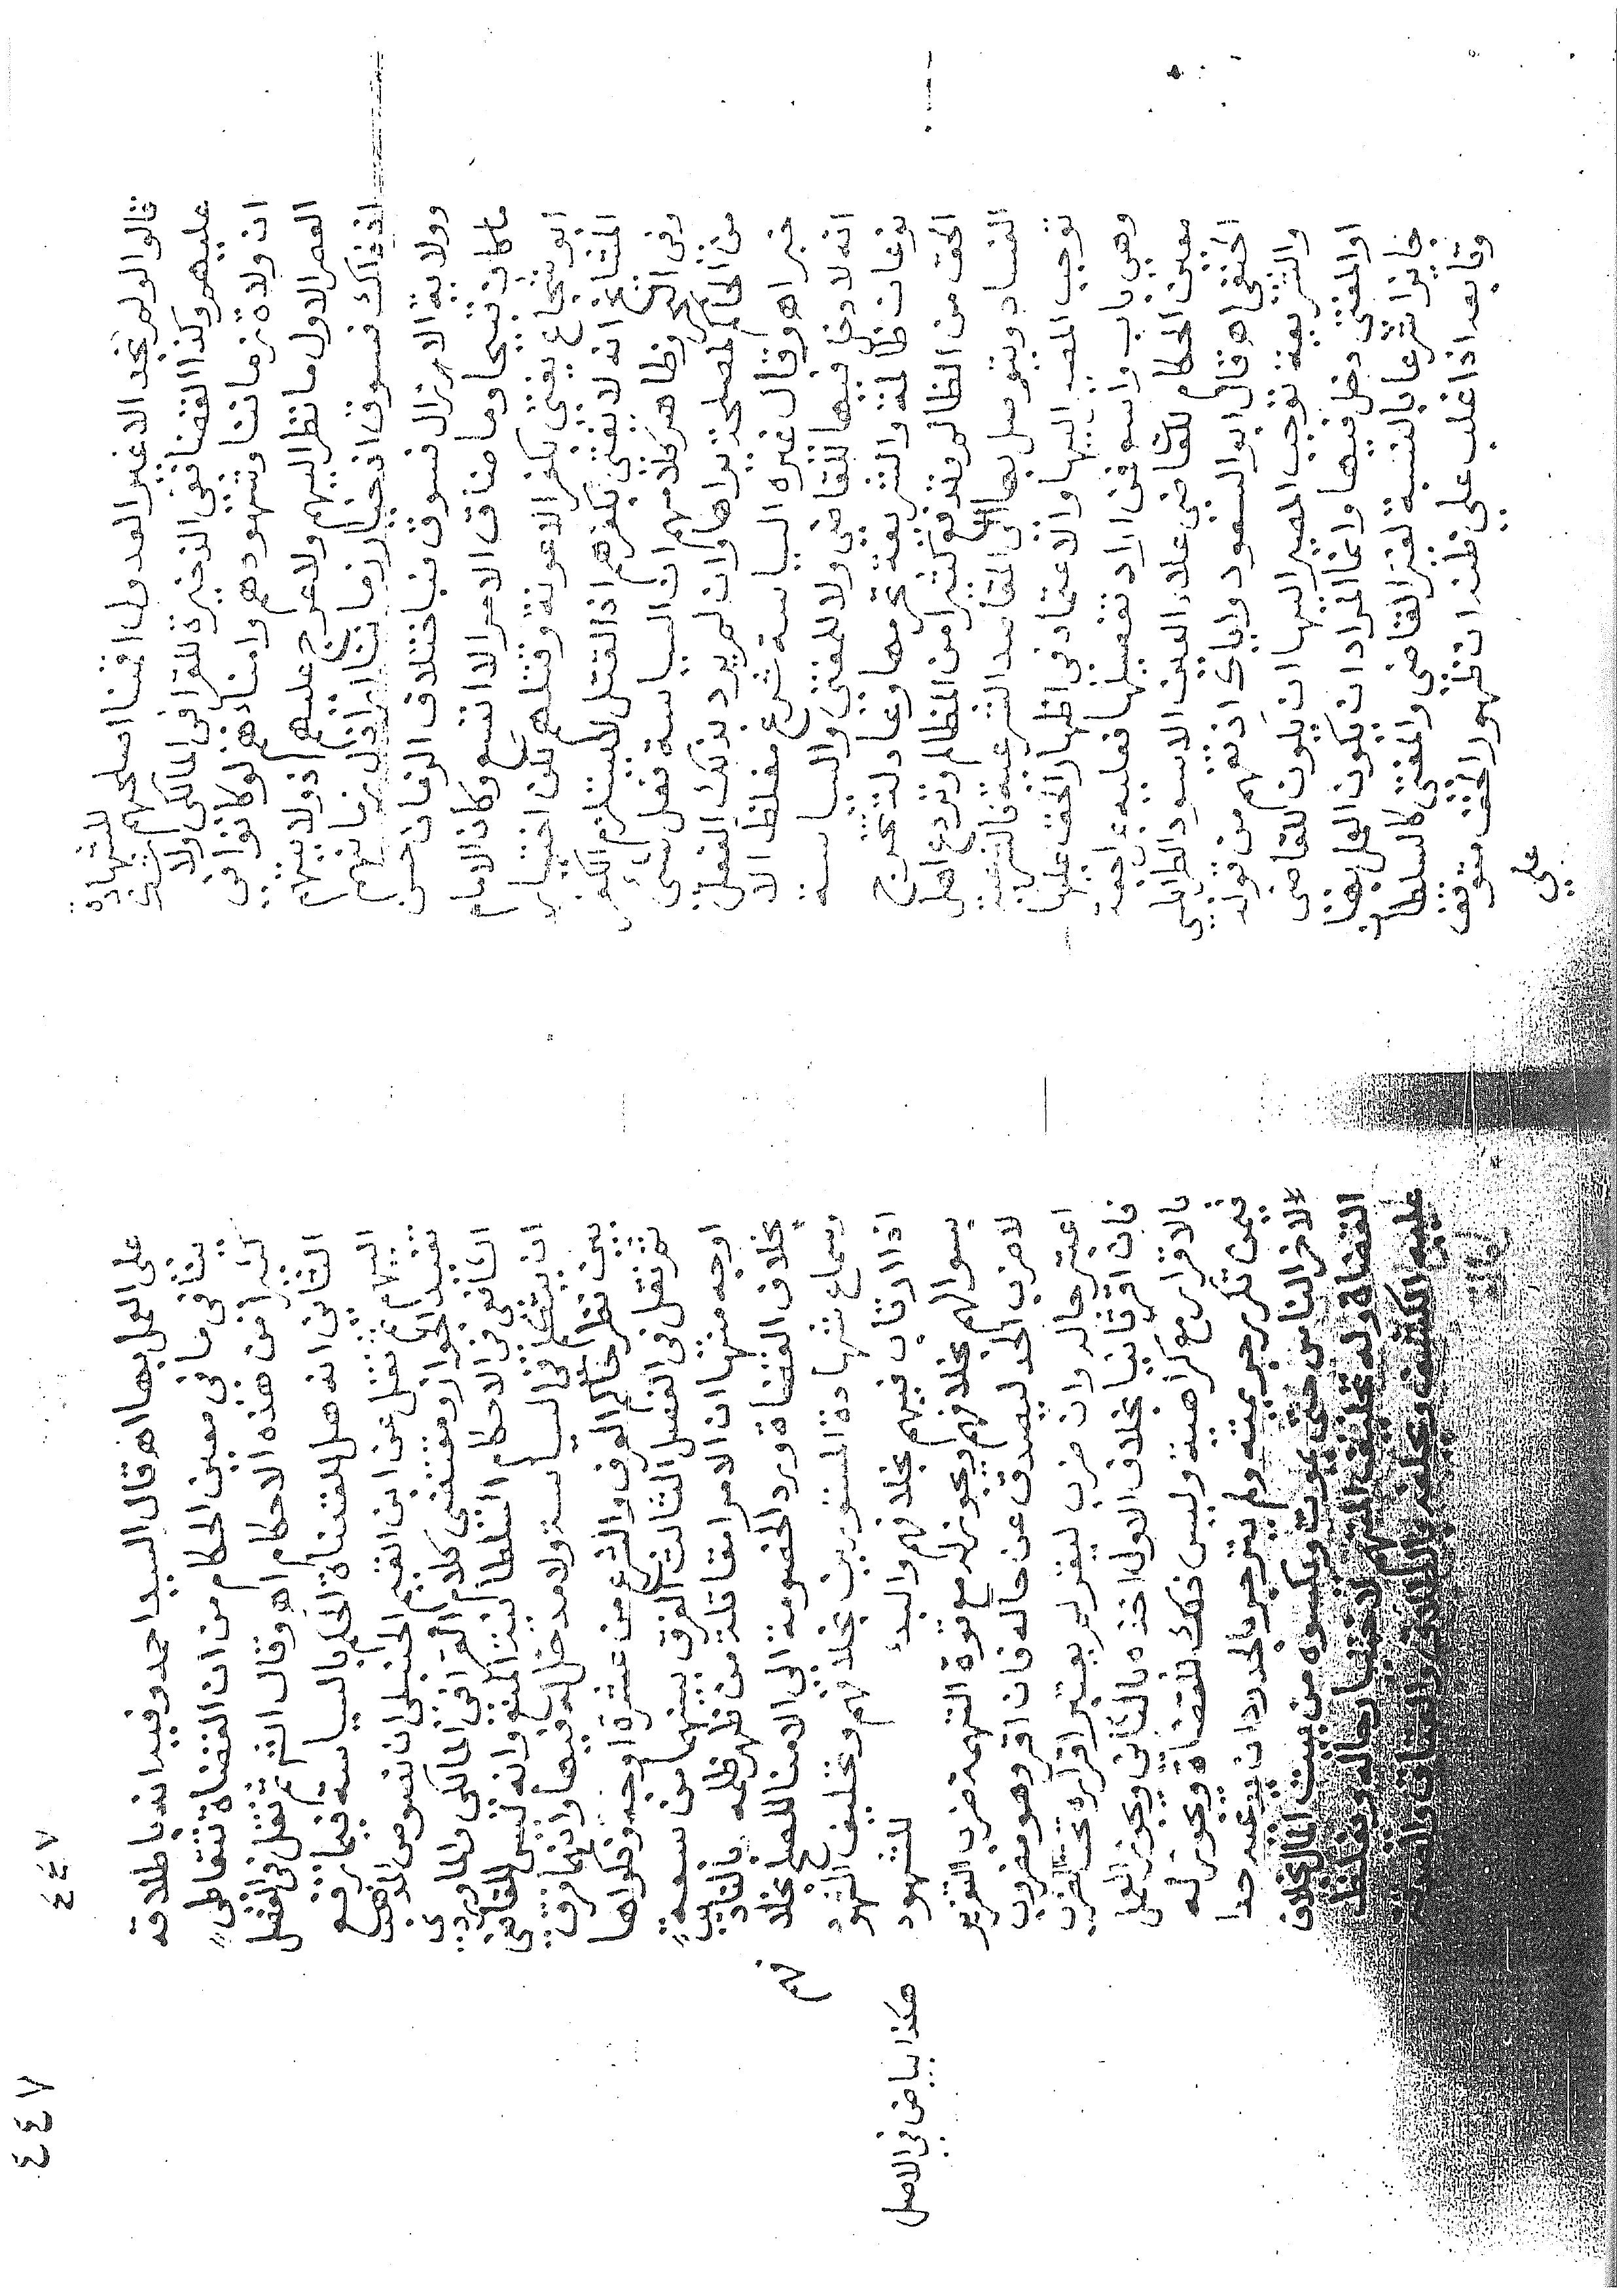 قالوا لو لم نجد الا غير العدول اقمنا اصلحهم للشهادة
عليهم وكذا القضا ففى الذخيرة للقرافى المالكى ولا
ان ولاة زماننا وشهودهم وامناءهم لو كانوا فى
العصر الاول ما نظر اليهم ولا عرج عليهم اذ ولايتهم
اذ ذاك فسوق اذ خيار زماننا اراذل زمانهم
وولاية الاراذل فسوق فباختلاف الزمان حسن
ما كان قبيحا وما ضاق الامر الا اتسع وكان الامام
ابو شجاع يفتى بكفر الاعونة وقتلهم لكن اختيار
المشايخ انه لا يفتى بكفرهم اذ القتل لا يستلزم الكفر
وفى البحر وظاهر كلامهم ان السياسة فعل شى
من الحاكم لمصلحة يراها وان لم يرد بذلك الفعل
خبر اهـ وقال غيره السياسة شرع مغلظ الا
انه لا دخل فيها للقاضى ولا للمفتى والسياسة
نوعان ظالمة والشريعة تحرمها وعادلة تخرج
الحق من الظالم وتدفع كثيرا من المظالم وتردع اهل
الفساد ويتوصل بها الى المقاصد الشرعية فالشريعة
توجب المصير اليها والاعتماد فى اظهار الحق عليها
وهى باب واسع فمن اراد تفصيلها فعليه بمراجعة
معين الحكام للقاضى علاء الدين الاسود الطرابلسى
الحنفى اهـ قال ابو السعود واياك ان تفهم من قوله
والشريعة توجب المصير اليها ان يكون القاضى
او المفتى دخل فيها وانما المراد ان يكون العمل بها
جايزا شرعا بالنسبة لغير القاضى والمفتى كالسلطان
وقا بعد اذا غلب على ظنه ان ظهور الحق متوقف
على
٤٤٧
٤٤٧
على العمل بها اهـ قال السيد احمد وفيه انه باطلاقه
ينافى ما فى معين الحكام من ان القضاة تتعاطى
كثيرا من هذه الاحكام اهـ وقال ثم نقل فى الفصل
الثانى انه هل للقضاة الحكم بالسياسة فيما رفع
اليهم ثم نقل عن ابن القيم الحنبلى ان نصوص المذهب
تفيد الجواز ومقتضى كلام القرافى المالكى والماوردى
الشافعى فى الاحكام السلطانية المنع وانه ليس للقاضى
ان يتكلم فى السياسة ولا مدخل له فيها وانما فرق
بين نظر حاكم العرف والشرع من عشرة اوجه وذكرها
ثم نقل فى الفصل الثالث الفرق بينهما من تسعة
اوجه منها ان للامرا مقابلة من ظهر ظلمه بالتاديب
بخلاف القضاة ورد الخصومة الى الامنا للصلح بخلافهم
وسماع شهادة المستورين بخلافهم وتحليف الشهود
اذا ارتاب فيهم بخلافهم والبدء للشهود
هكذا بياض فى الاصل
بسوالهم بخلافهم ويجوز لهم مع قوة التهمة ضرب التعزير
لا ضرب الحد ليصدق عن حاله فان اقر وهو مضروب
اعتبر حاله وان ضرب ليقر لم يعتبر اقراره تحت الضرب
فان اقر ثانيا بخلاف الاول اخذه بالثانى ويجوز العمل
بالاقرار مع كراهية وليس ذلك للقضاة ويجوز له
فيمن تكرر جريمته ولم ينزجر بالحدود ان يؤبد حبسه
لاضرار الناس حتى يموت ويكسوه من بيت المال بخلاف
القضاة وله تحليف المتهم لاختبار حاله ويغلظ
عليه الكشف ويحلفه بالطلاق والعتاق والصدقة